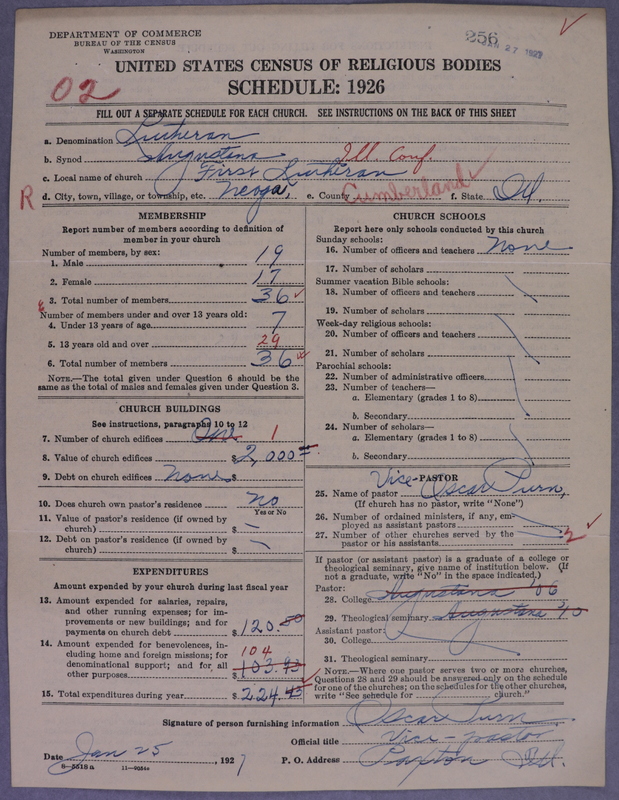 DEPARTMENT OF COMMERCE
BUREAU OF THE CENSUS
WASHINGTON
256
JAN 27 1927
UNITED STATES CENSUS OF RELIGIOUS BODIES
SCHEDULE: 1926
02
FILL OUT A SEPARATE SCHEDULE FOR EACH CHURCH. SEE INSTRUCTIONS ON THE BACK OF THIS SHEET
a. Denomination Lutheran
b. Synod Augustana Ill. Conf.
c. Local name of church First Lutheran
R d. City, town, village, or township, etc. Neoga, e. County Cumberland f. State Ill.
MEMBERSHIP
Report number of members according to definition of
member in your church
Number of members, by sex:
1. Male 19
2. Female 17
3. Total number of members 36
Number of members under and over 13 years old:
4. Under 13 years of age 7
5. 13 years old and over 29
6. Total number of members 36
NOTE.—The total given under Question 6 should be
same as the total of males and females given under Question 3.
CHURCH BUILDINGS
See instructions, paragraphs 10 to 12
7. Number of church edifices One 1
8. Value of church edifices $2,000
9. Debt on church edifices None $
10. Does church own pastor's residence no
Yes or No
11. Value of pastor's residence (if owned by
church) $ —
12. Debt on pastor's residence (if owned by
church) $ —
EXPENDITURES
Amount expended by your church during last fiscal year
13. Amount expended for salaries, repairs,
and other running expenses; for im-
provements or new buildings; and for
payments on church debt $ 120.
14. Amount expended for benevolences, in-
cluding home and foreign missions; for
denominational support; and for all
other purposes $ 103. 104
15. Total expenditures during year $ 224.
CHURCH SCHOOLS
Report here only schools conducted by this church
Sunday schools:
16. Number of officers and teachers None
17. Number of scholars
Summer vacation Bible schools:
18. Number of officers and teachers
19. Number of scholars
Week-day religious schools:
20. Number of officers and teachers
21. Number of scholars
Parochial schools:
22. Number of administrative officers
23. Number of teachers—
a. Elementary (grades 1 to 8)
b. Secondary
24. Number of scholars—
a. Elementary (grades 1 to 8)
b. Secondary
Vice-PASTOR
25. Name of pastor Oscar Purn,
(If church has no pastor, write "None")
26. Number of ordained ministers, if any, em-
ployed as assistant pastors
27. Number of other churches served by the
pastor or his assistants 2
If pastor (or assistant pastor) is a graduate of a college or
theological seminary, give name of institution below. (If
not a graduate, write "No" in the space indicated.)
Pastor:
28. College Augustana 06
29. Theological seminary Augustana
Assistant pastor:
30. College
31. Theological seminary
NOTE.—Where one pastor serves two or more churches,
Questions 28 and 29 should be answered only on the schedule
for one of the churches; on the schedules for the other churches,
write "See schedule for church."
Signature of person furnishing information Oscar Purn
Official title Vice-pastor
Date Jan 25, 1927 P. O. Address Paxton Ill.
8—5518a 11—9054a